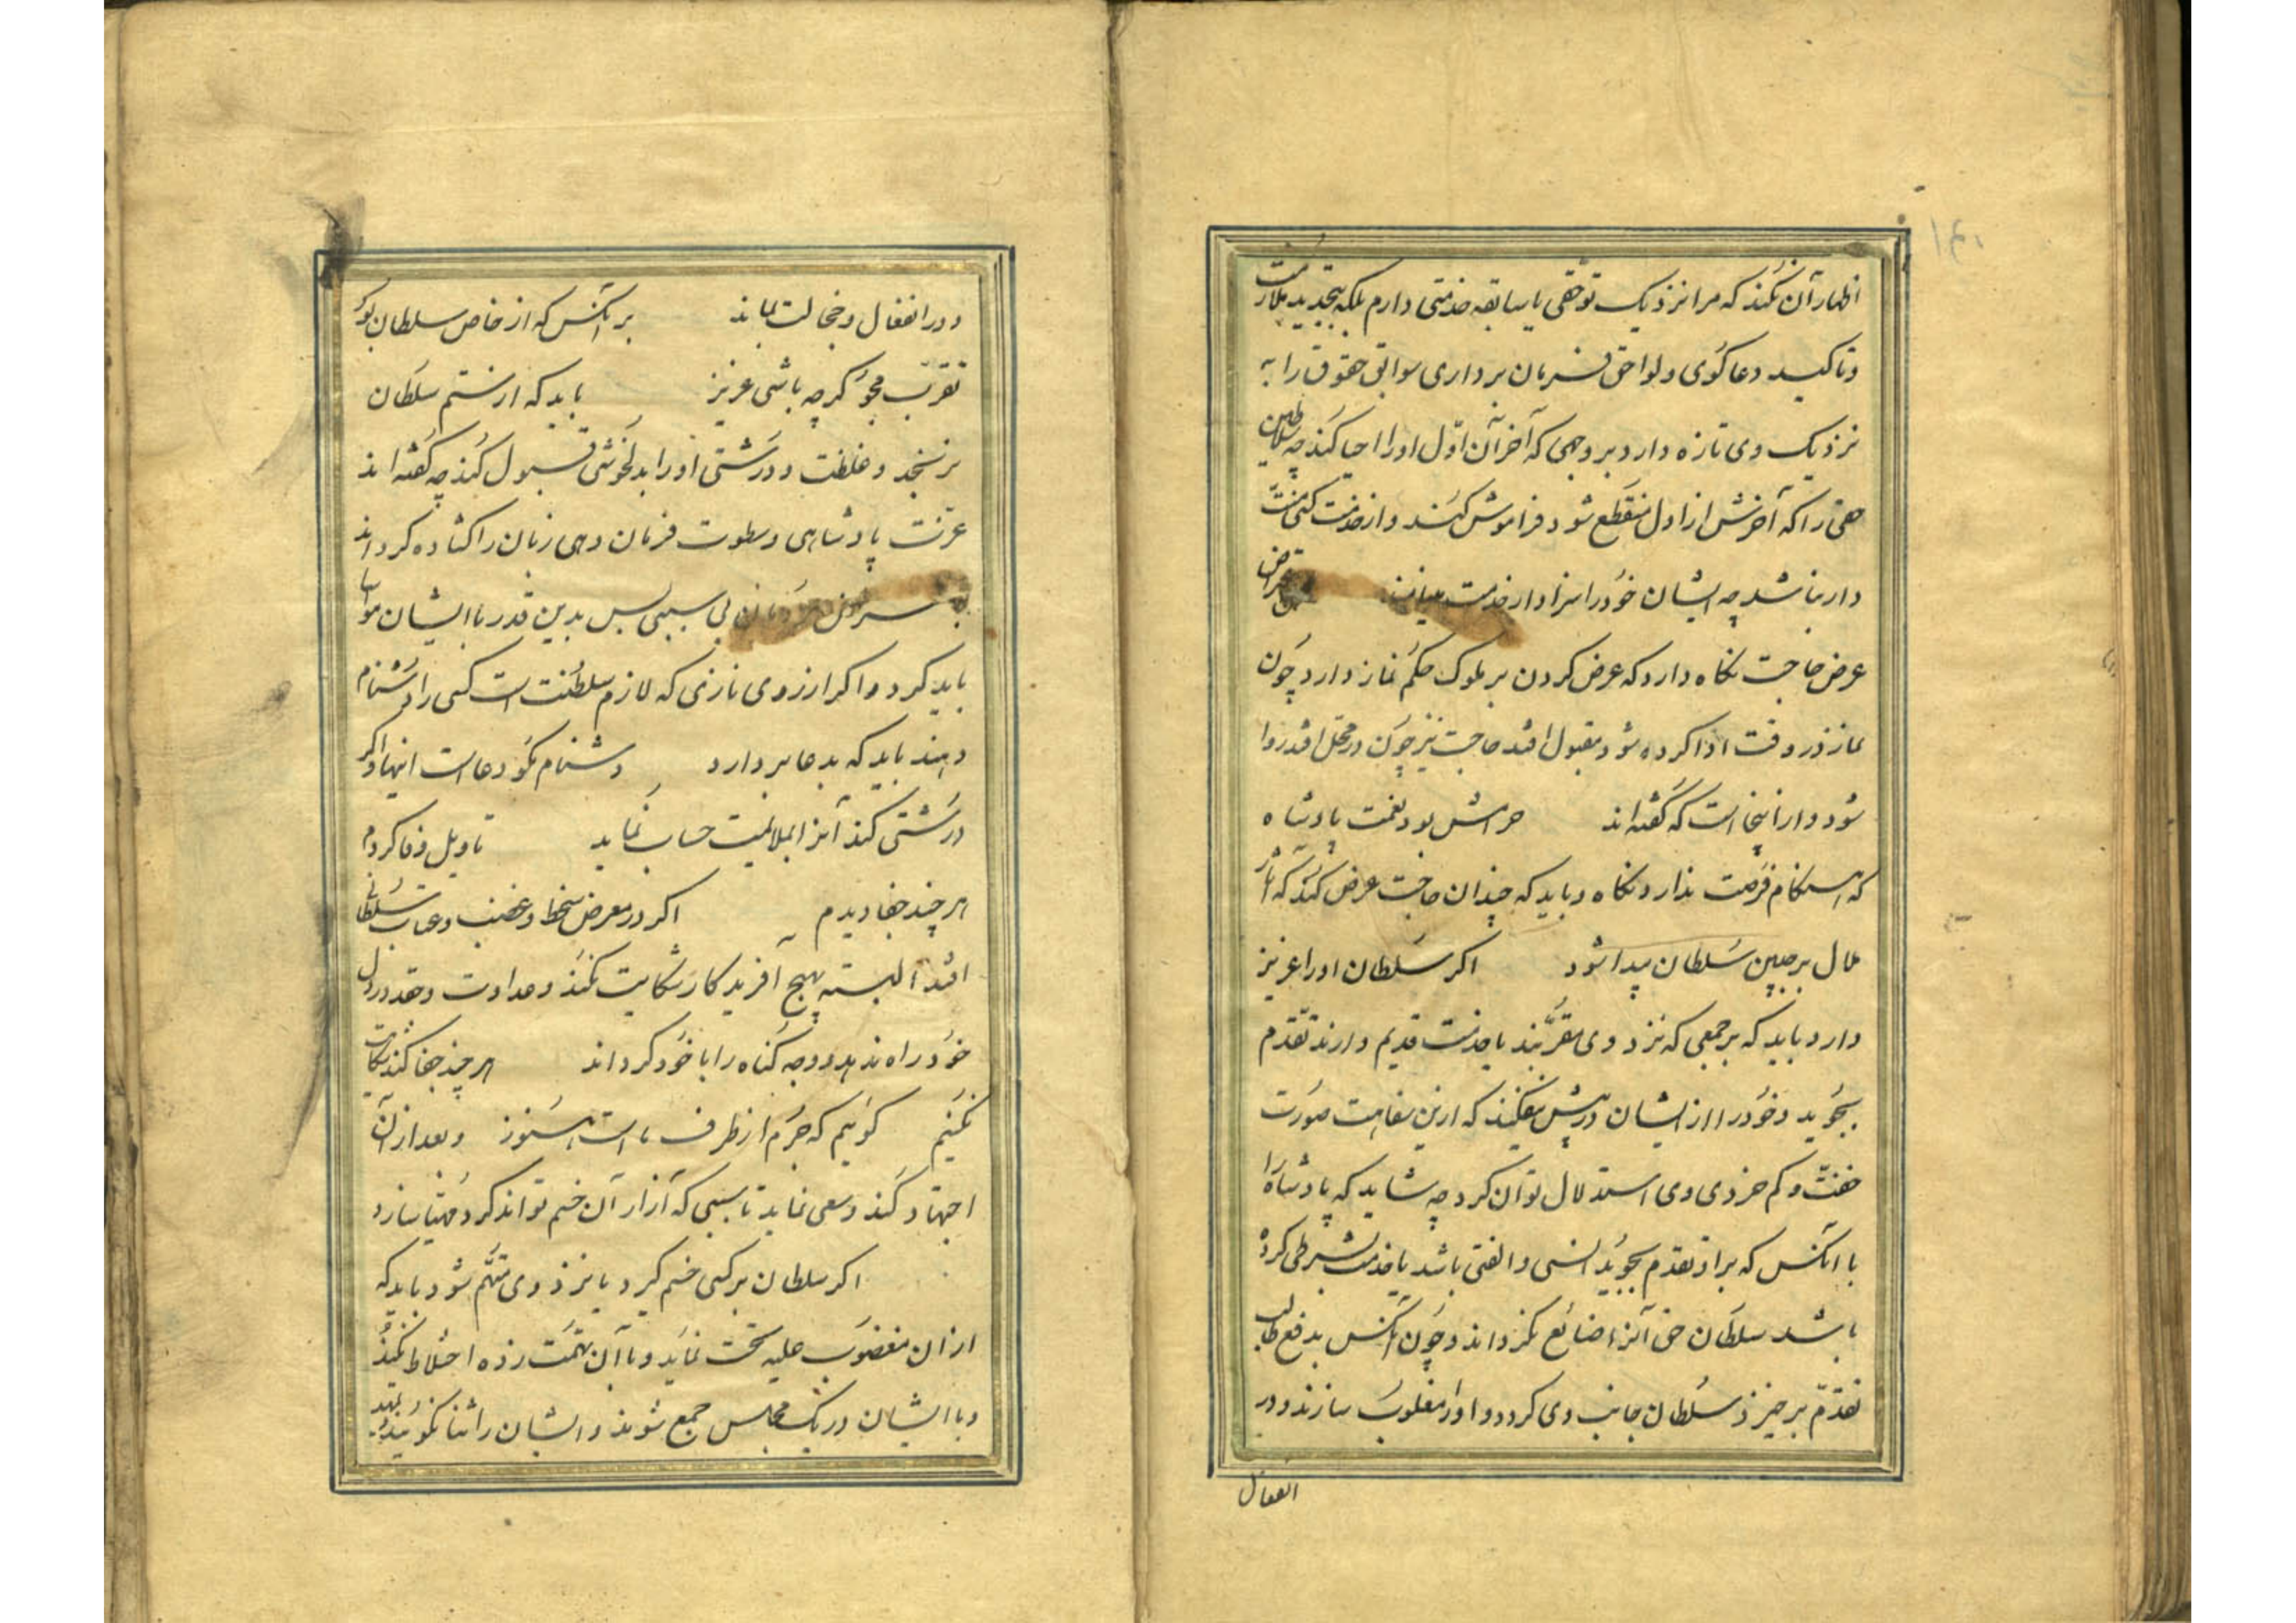 اظهار آن نکند که مرا نزدیک تو حقی یا سابقه خدمتی دارم بلکه بتجدید ملازمت
و تاکید دعا گوی و لواحق فرمان برداری سوابق حقوق را به
نزدیک وی تازه دارد بر وجهی که آخر آن اول او را احیا کند چه سلاطین
حقی را که آخرش از اول منقطع شود فراموش کنند و از خدمت کسی منت
دار نباشد چه ایشان خود را سزاوار خدمت میدانند
عرض حاجت نگاه دارد که عرض کردن بر ملوک حکم نماز دارد چون
نماز در وقت ادا کرده شود مقبول افتد حاجت نیز چون در محل افتد روا
شود و ازاینجا است که گفته‌اند حرامش بود نعمت پادشاه
که هنگام فرصت ندارد نگاه و باید که چندان حاجت عرض نکند که آثار
ملال بر جبین سلطان پیدا شود اگر سلطان او را عزیز
دارد باید که بر جمعی که نزد وی مقربند یا خدمت قدیم دارند تقدم
بجوید و خود را از ایشان در پیش نیفکند که ازین سفاهت صورت
خفت و کم خردی وی استدلال توان کرد چه شاید که پادشاه را
با آنکس که بر او تقدم بجوید انسی و الفتی باشد یا خدمت شرطی کرده
باشد سلطان حق آنرا ضائع نگرداند و چون آنکس بدفع طالب
تقدم برخیزد سلطان جانب وی گردد و او را مغلوب سازند و در
انفعال
و در انفعال و خجالت بماند بر آنکس که از خاص سلطان بود
تقرب مجو گر چه باشی عزیز باید که از ستم سلطان
نرنجد و غلظت و درشتی او را بدلخوشی قبول کند چه گفته‌اند
عزت پادشاهی و سطوت فرمان دهی زبان را گشاده گرداند
بی سببی پس بدین قدر با ایشان مواسا
باید کرد و اگر از روی نازی که لازم سلطنت است کسی را دشنام
دهند باید که بدعا بر دارد دشنام نکو دعا است اینها و اگر
درشتی کند آنرا بملایمت حساب نماید تاویل وفا کردم
هر چند جفا دیدم اگر در معرض سخط و غضب و عتاب سلطانی
افتد البته بهیچ آفریدگار شکایت نکند و عداوت و حقد در دل
خود راه ندهد و وجه گناه را با خود گرداند هر چند جفا کند شکایت
نکنیم گوئیم که جرم از طرف ماست هنوز و بعد از آن
اجتهاد کند و سعی نماید تا سببی که آزار آن خشم تواند کرد مهیا سازد
اگر سلطان بر کسی خشم گیرد یا نزد وی متهم شود باید که
از آن مغضوب علیه تحت نماید و با آن تهمت زده اختلاط نکند
و با ایشان در یک مجلس جمع شوند و ایشان را ثنا نگویند